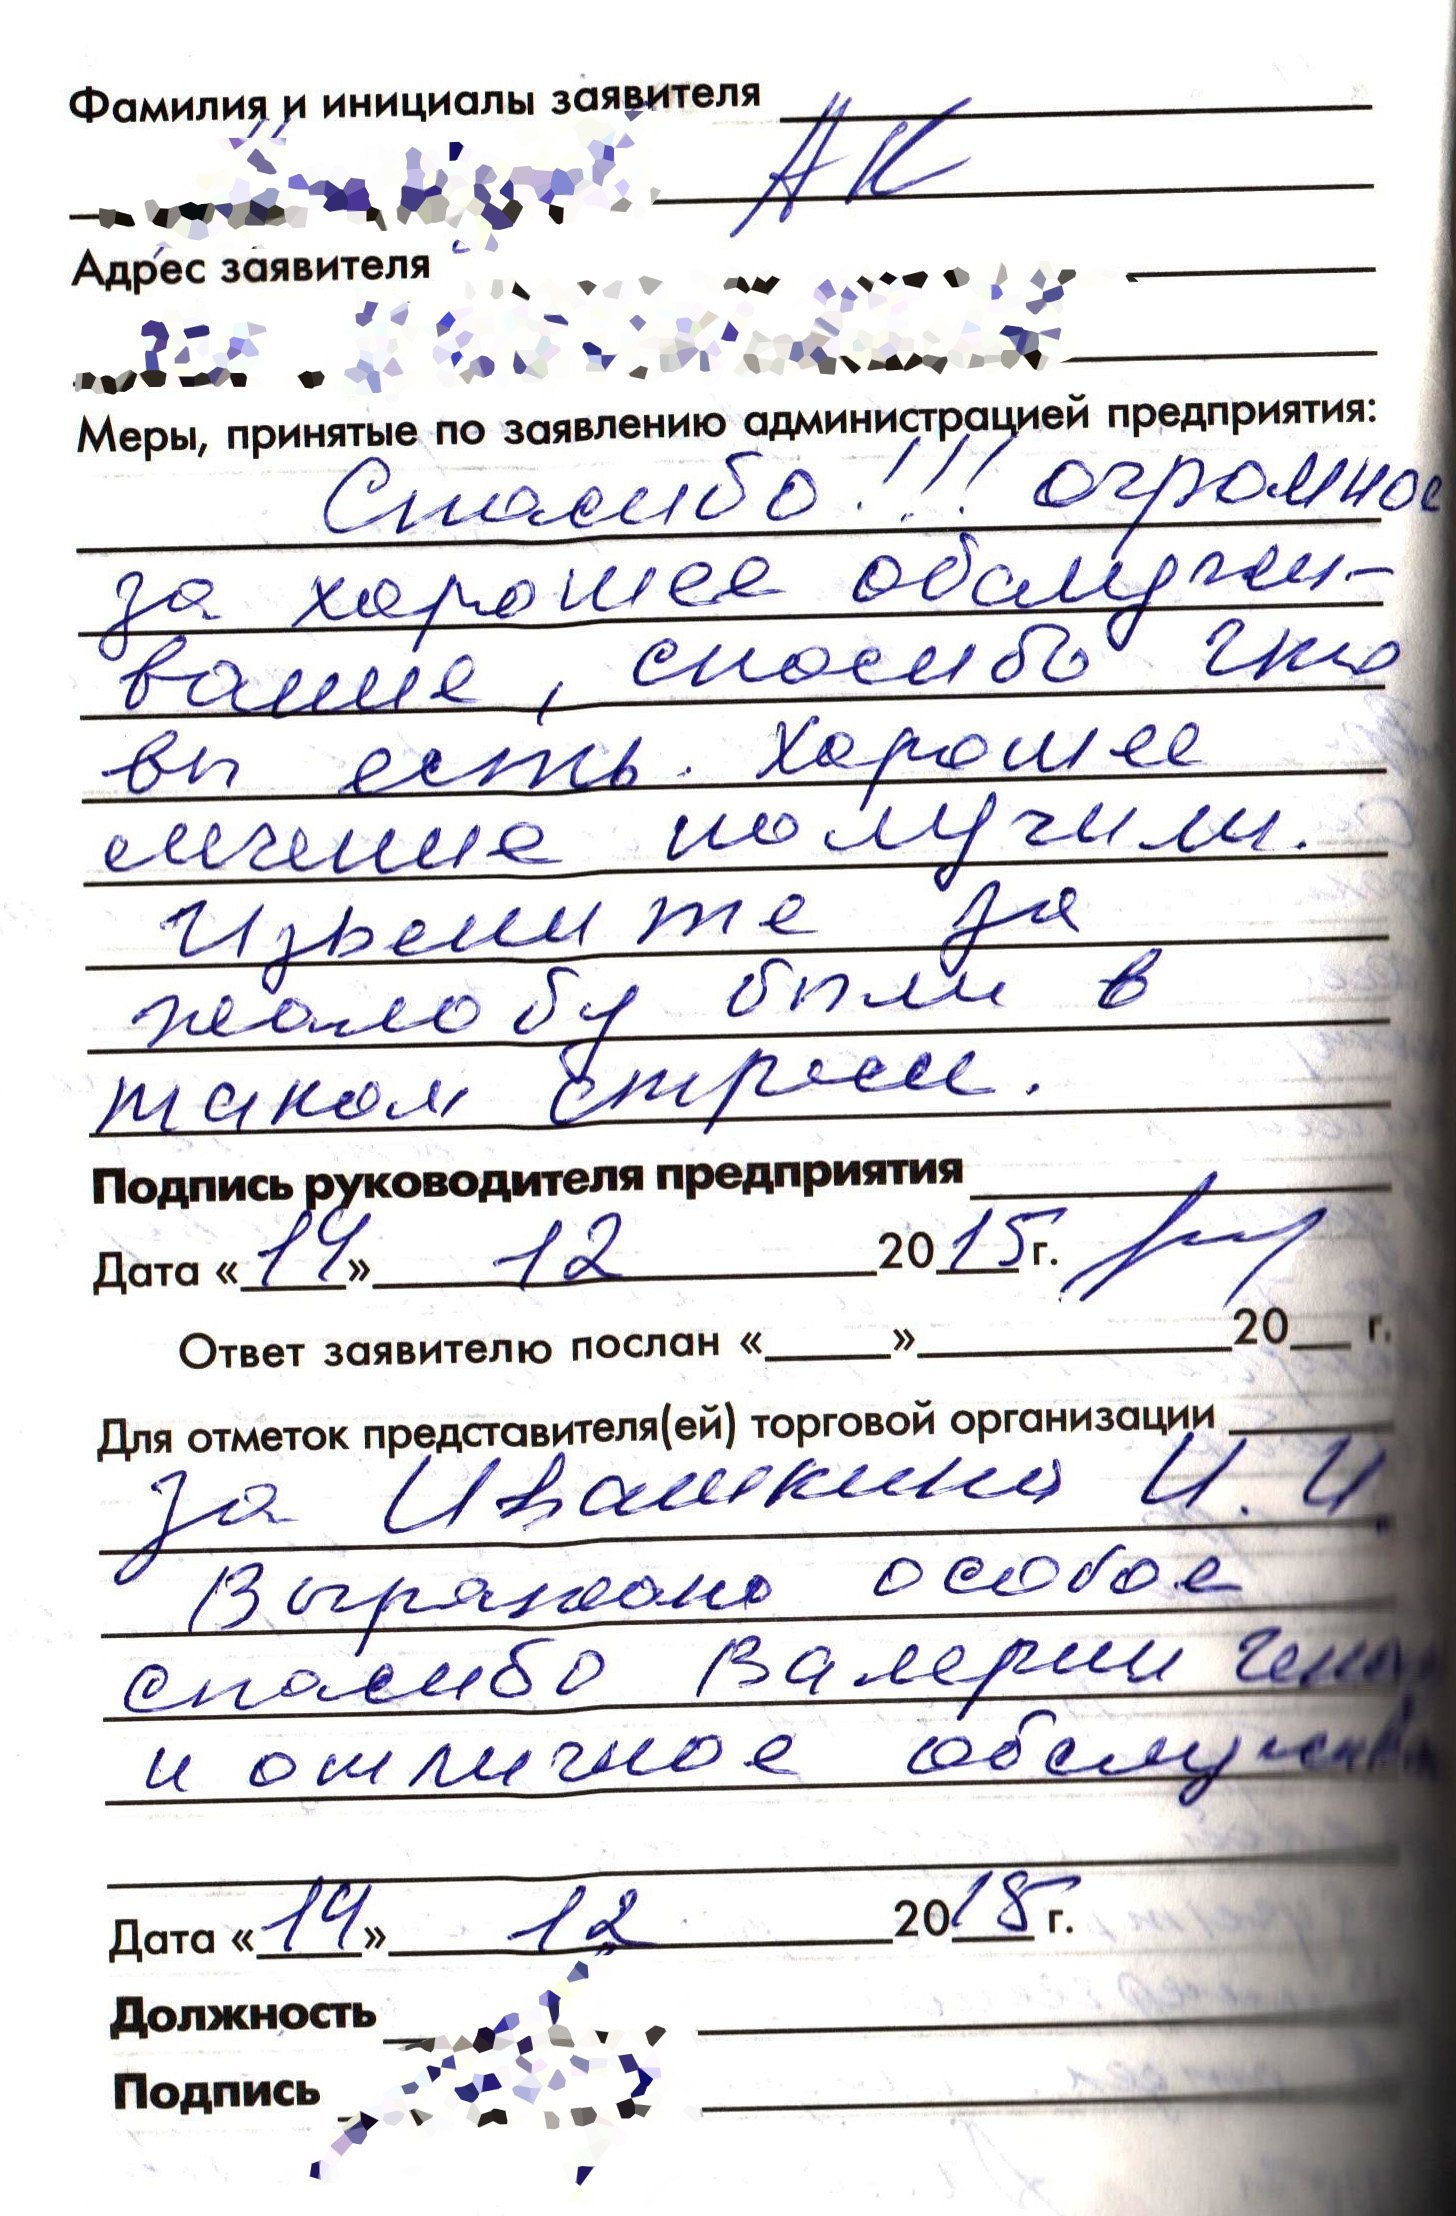 Фамилия и инициалы заявителя
АК
Адрес заявителя
Меры, принятые по заявлению администрацией предприятия:
Спасибо!!! огромное
за хорошее обслужи-
вание, спасибо что
вы есть. Хорошее
лечение получили.
Извените за
жалобу были в
таком стресе.
Подпись руководителя предприятия
Дата «14» 12 2015 г.
Ответ заявителю послан « » 20 г.
Для отметок представителя(ей) торговой организации
за Ивашкина И. И.
Выражаю особое
спасибо Валерии
и отличное
Дата «14» 12 2015 г.
Должность
Подпись